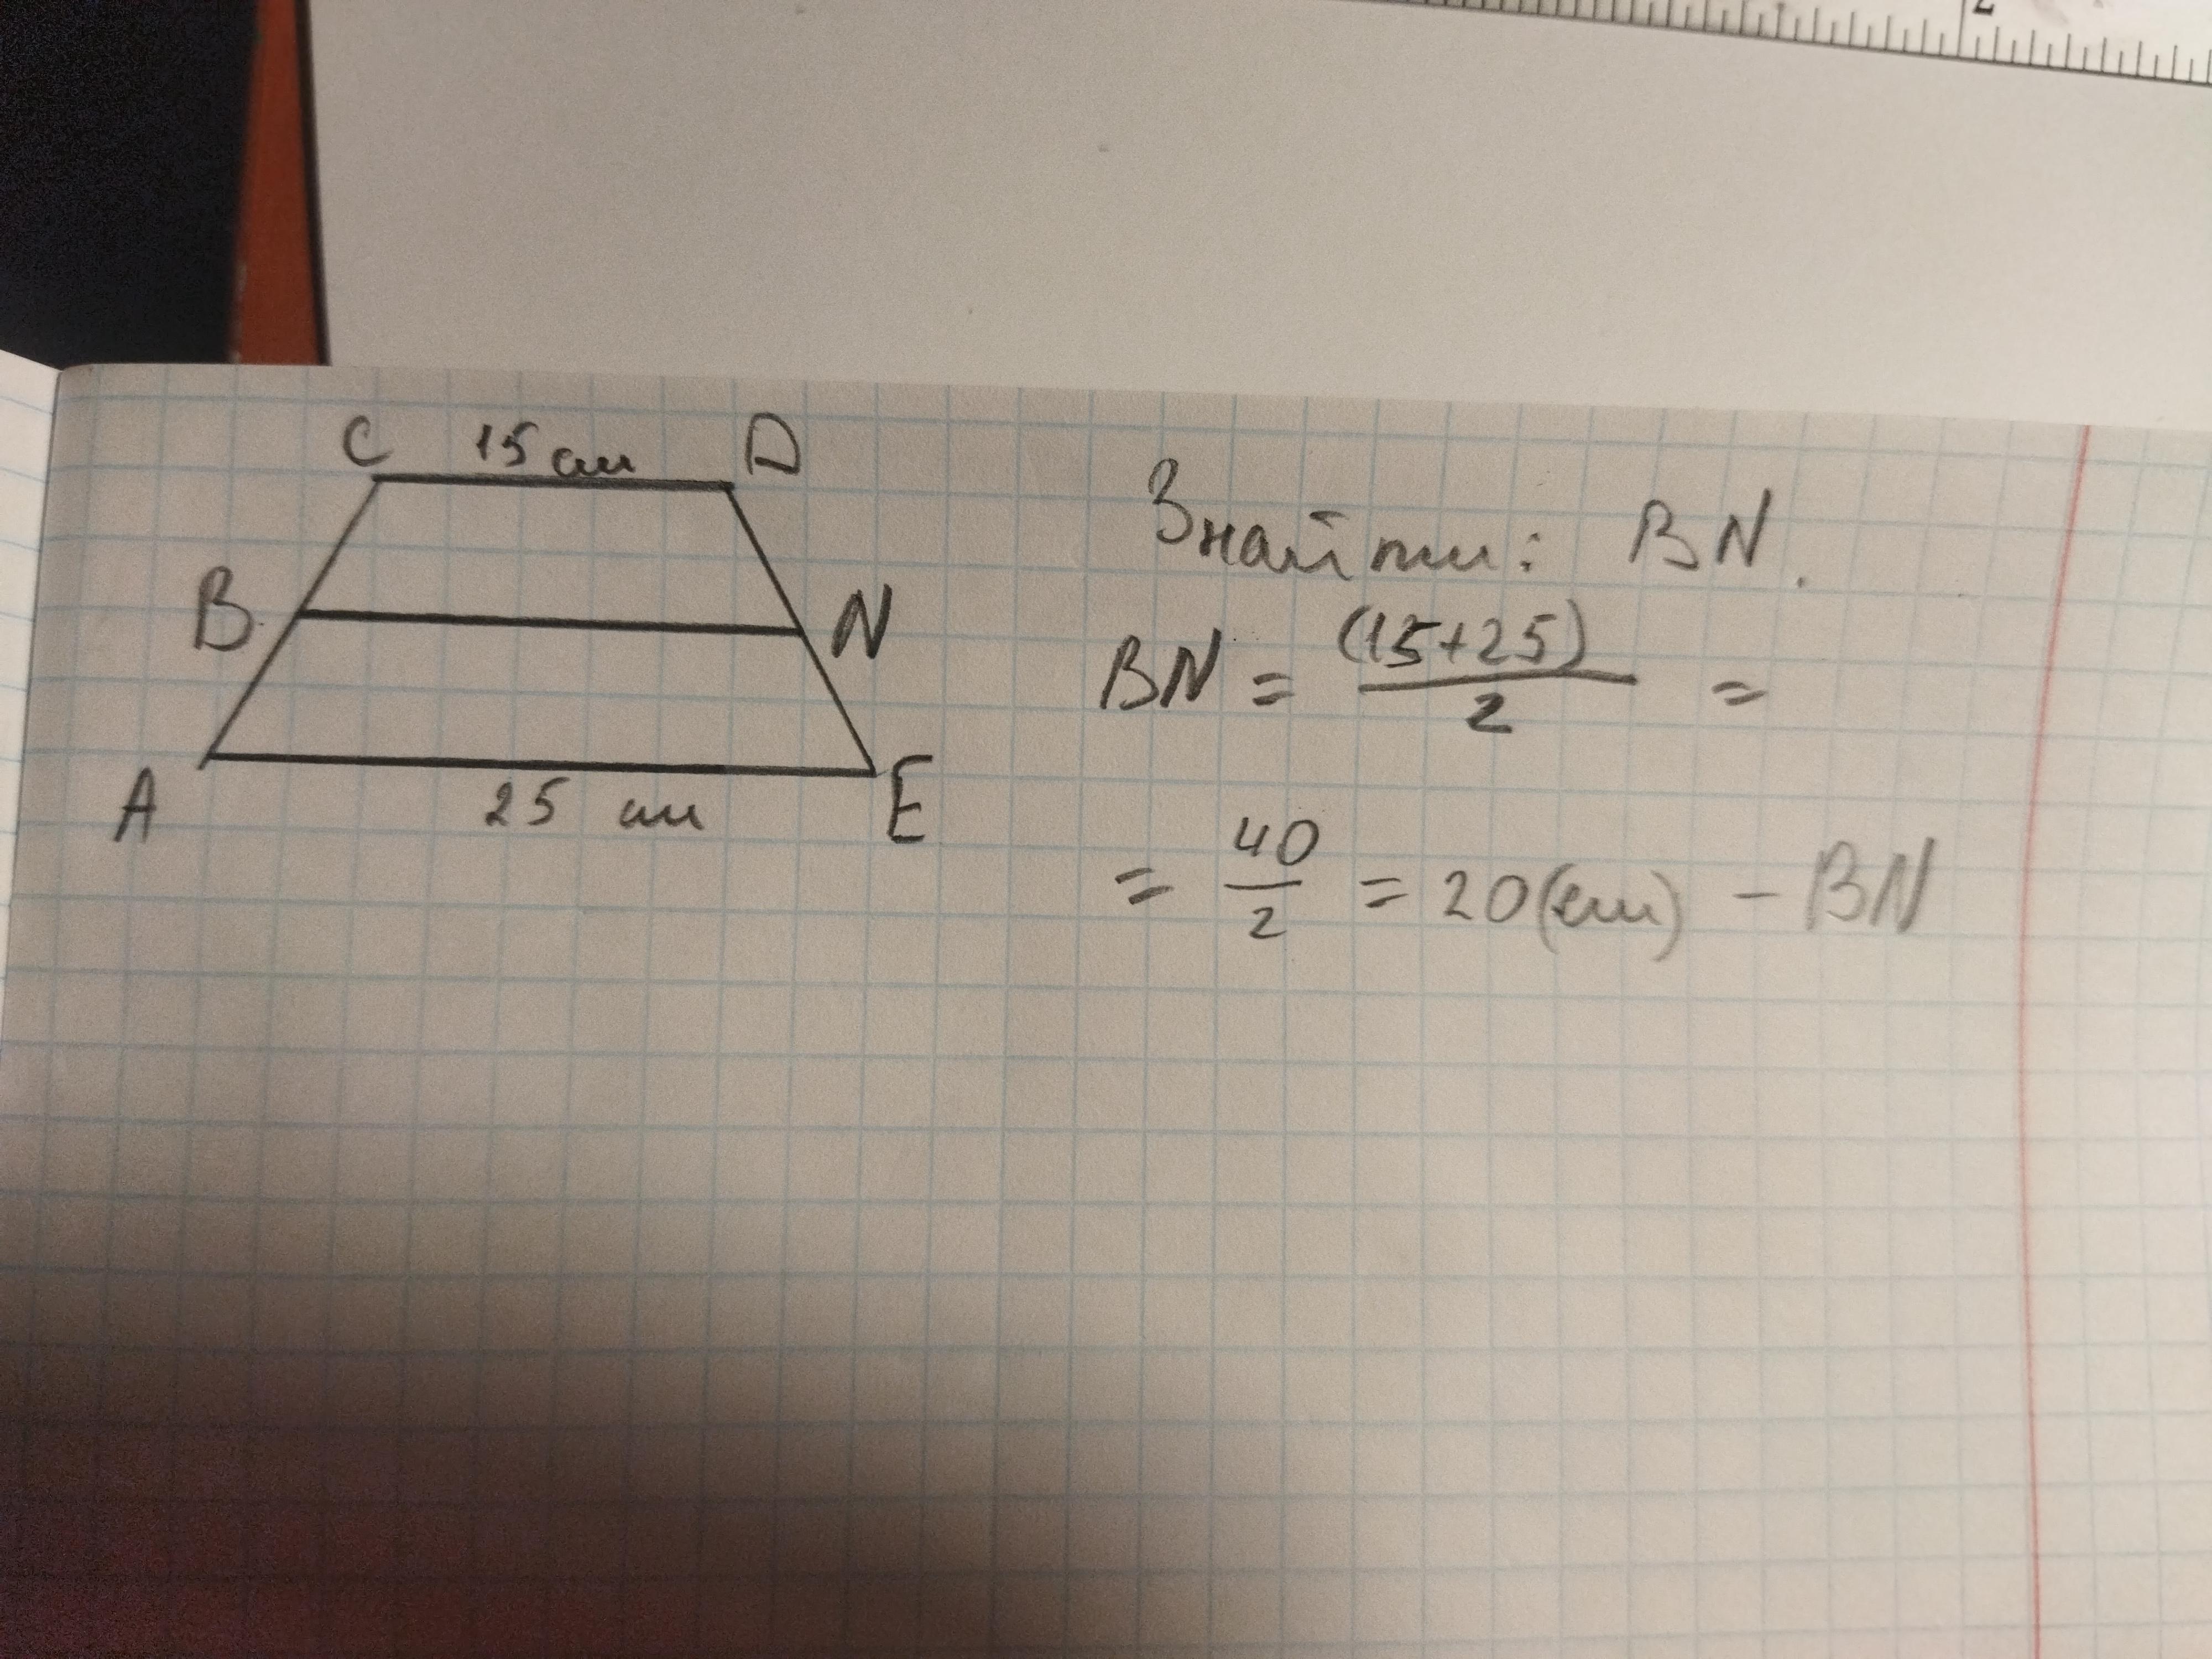 2
C 15 см D
B N
A 25 см E
Знайти: BN.
BN = (15+25)/2 =
= 40/2 = 20(см) - BN